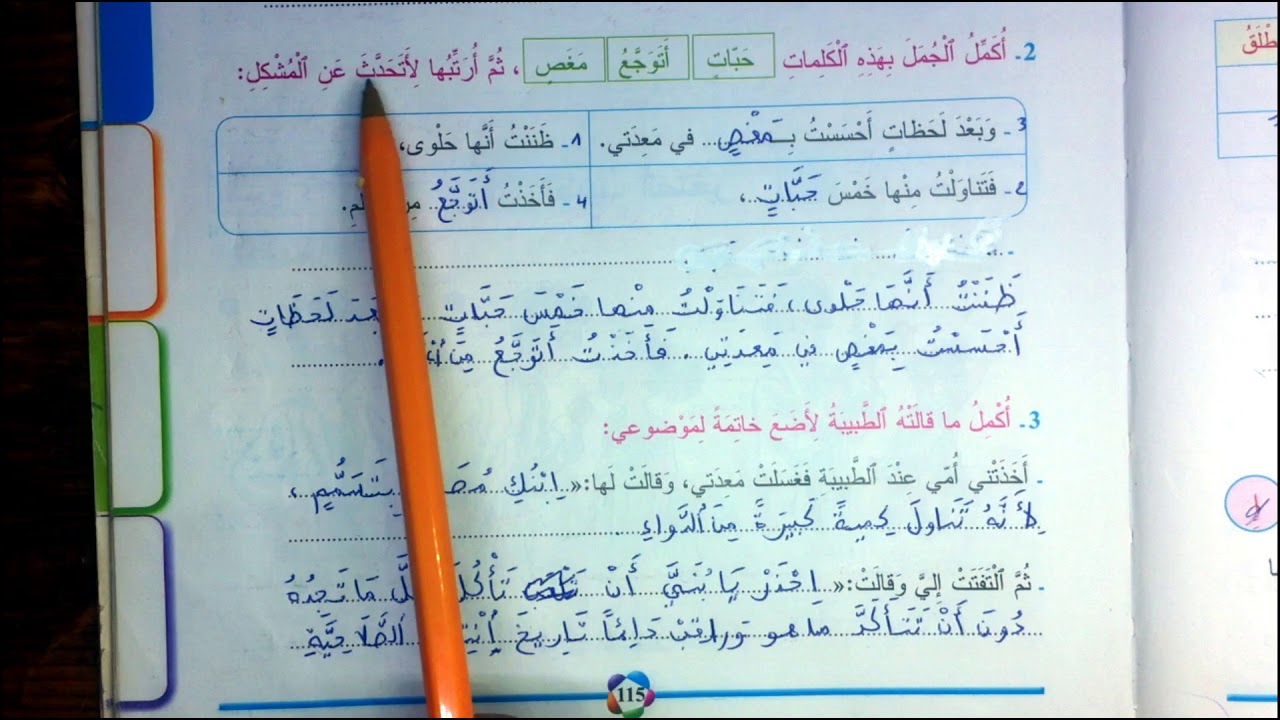 2- أُكَمِّلُ ٱلْجُمَلَ بِهَذِهِ ٱلْكَلِماتِ حَبّاتٍ أَتَوَجَّعُ مَغَصٍ ، ثُمَّ أُرَتِّبُها لِأَتَحَدَّثَ عَنِ ٱلْمُشْكِلِ:
3- وَبَعْدَ لَحَظاتٍ أَحْسَسْتُ بِـمَغْصٍ... في مَعِدَتي.
1- ظَنَنْتُ أَنَّها حَلْوى،
2- فَتَناوَلْتُ مِنْها خَمْسَ حَبَّاتٍ،
4- فَأَخَذْتُ أَتَوَجَّعُ
ظَنَنْتُ أَنَّهَا حَلْوى، فَتَنَاوَلْتُ مِنْهَا خَمْسَ حَبَّاتٍ لَحَظَاتٍ
أَحْسَسْتُ بِمَغْصٍ فِي مَعِدَتِي. فَأَخَذْتُ أَتَوَجَّعُ
3- أُكْمِلُ ما قالَتْهُ ٱلطَّبيبَةُ لِأَضَعَ خاتِمَةً لِمَوْضوعي:
- أَخَذَتْني أُمّي عِنْدَ ٱلطَّبيبَةِ فَغَسَلَتْ مَعِدَتي، وَقالَتْ لَها:« اِبْنُكِ بِتَسَمُّمٍ،
لِأَنَّهُ تَنَاوَلَ كِمِيةً كَبِيرَةً مِنَ الدَّوَاءِ.
- ثُمَّ ٱلْتَفَتَتْ إِلَيَّ وَقالَتْ:« اِحْذَرْ يَا بُنَيَّ أَنْ تَأْكُلَ مَا تَجِدُهُ
دُونَ أَنْ تَتَأَكَّدَ مَا هو وَرَاقِبْ دَائِماً تَارِيخَ الصَّلَاحِيَّةِ
115